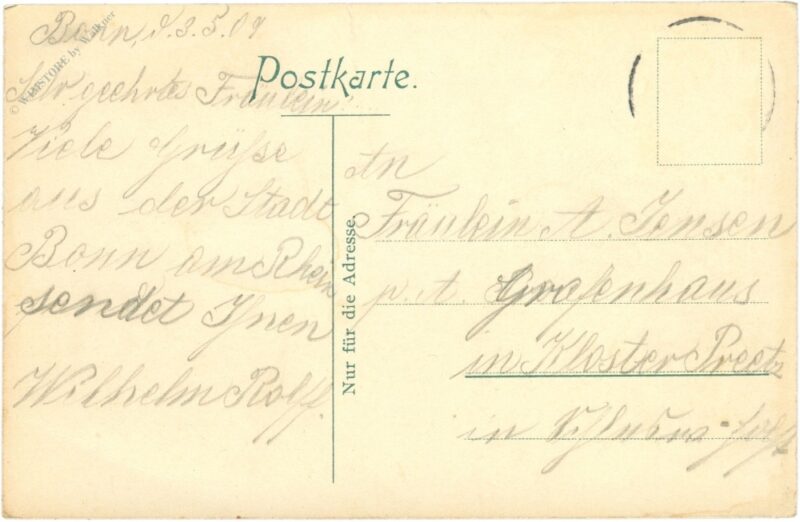 Bonn, d. 3.5.09
© WIMSTORE by Walkner
Postkarte.
Sehr geehrtes Fräulein
Viele Grüße
aus der Stadt
Bonn am Rhein
sendet Ihnen
Wilhelm Rolff.
Nur für die Adresse.
An
Fräulein A. Jensen
p. A. Grafenhaus
in Kloster Preetz
in Schlesw=Holst